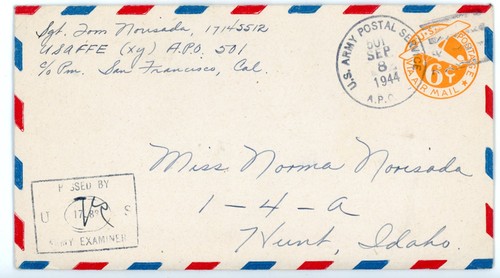 Sgt. Tom Norisada, 17145512
USAFFE (xy) A.P.O. 501
c/o Pm. San Francisco, Cal.
U.S. ARMY POSTAL SERVICE
501
SEP
8
1944
A.P.O.
U.S. POSTAGE
6¢
VIA AIR MAIL
Miss Norma Norisada
1-4-A
Hunt, Idaho.
PASSED BY
U S
ARMY EXAMINER